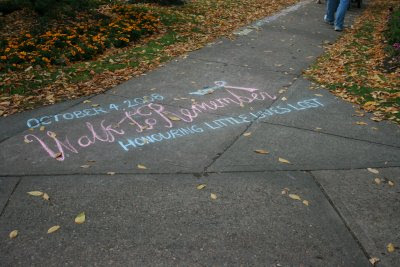 OCTOBER 4, 2008
Walk to Remember
HONOURING LITTLE LIVES LOST